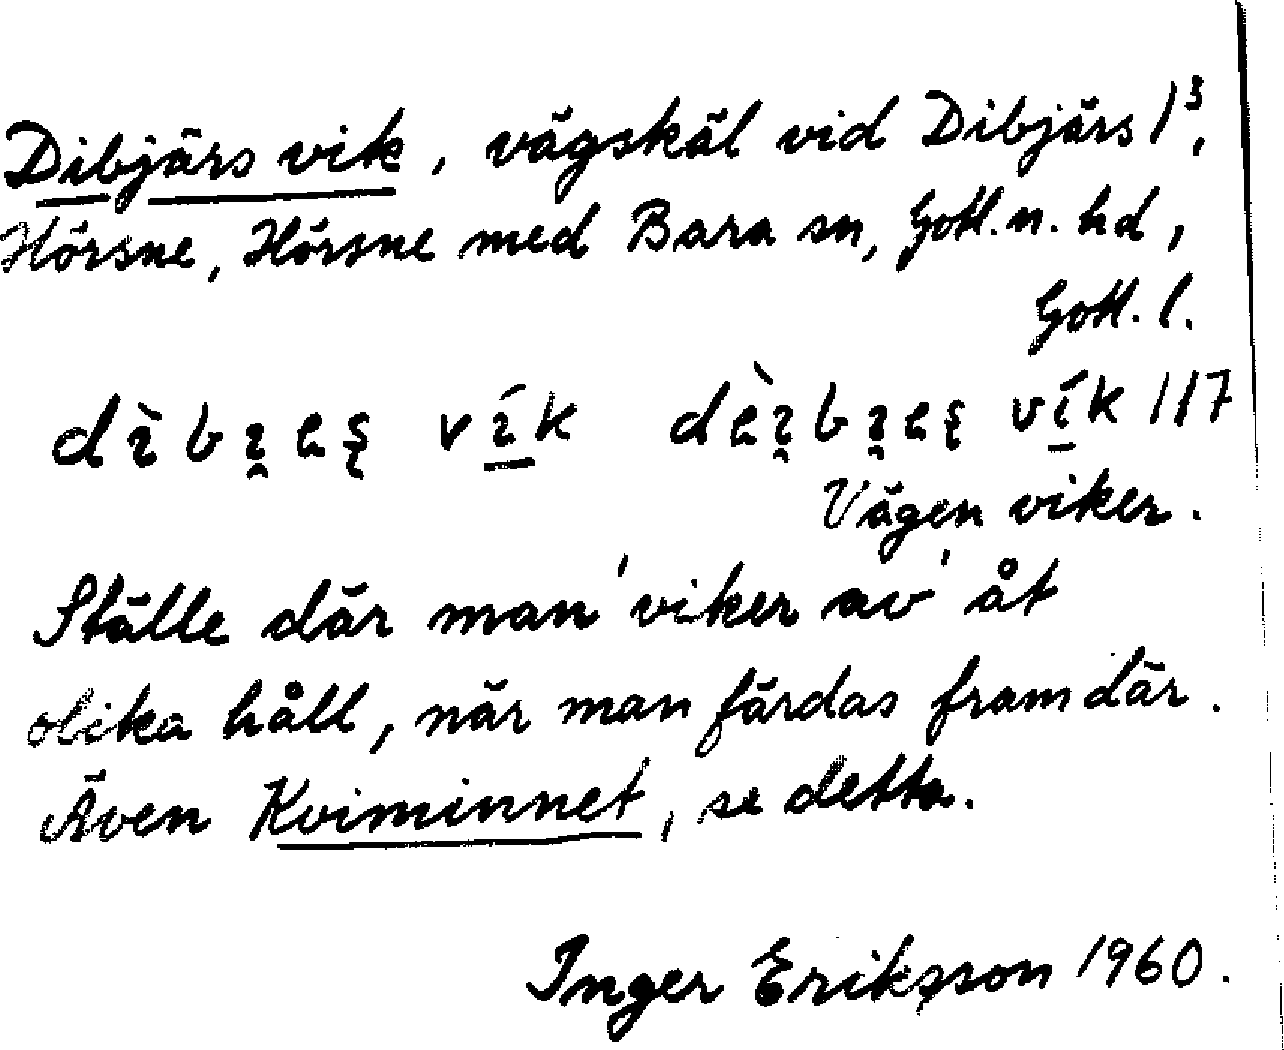 Dibjärs vik, vägskäl vid Dibjärs 1³,
Hörsne, Hörsne med Bara sn, Gotl. n. hd,
Gotl. l.
vík 117
Vägen viker.
Ställe där man 'viker av' åt
olika håll, när man färdas fram där.
Även Kviminnet, se detta.
Inger Eriksson 1960.